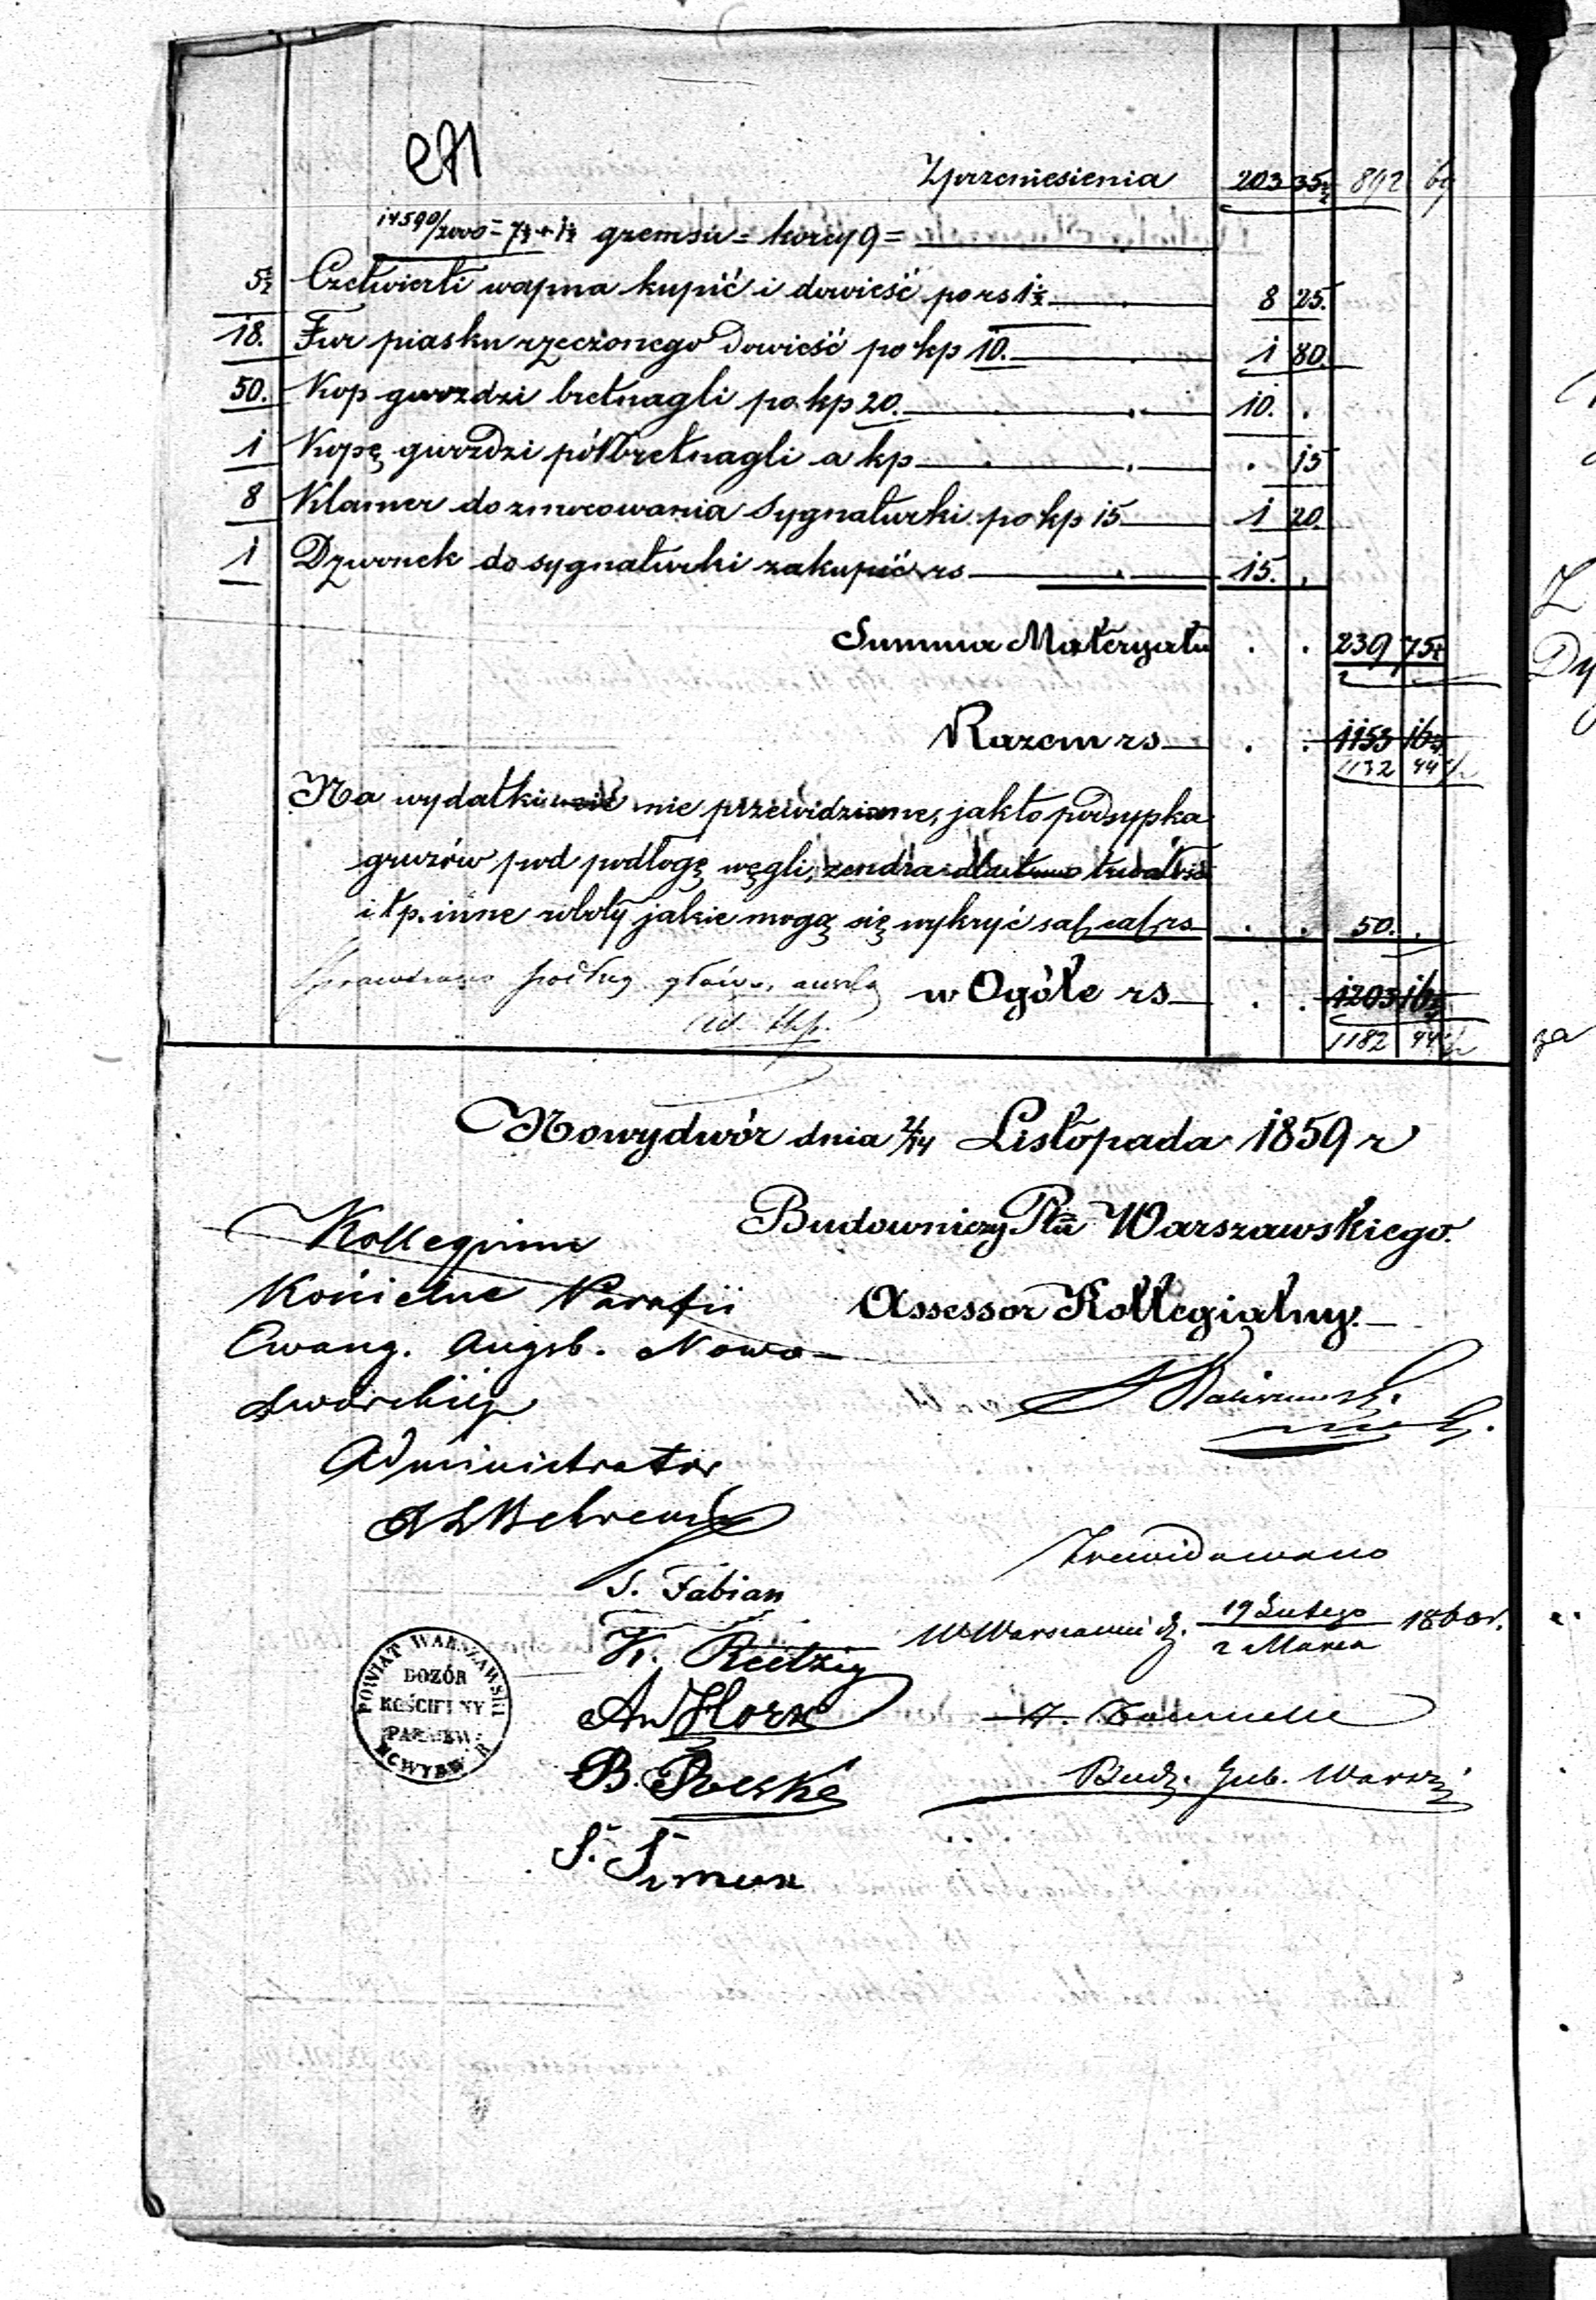 Z przeniesienia 203 35½ 892 69
14590/2000 = 7½ + 1½ gzemsu = korcy 9 =
5½ Czetwierti wapna kupić i dowieść po rs 1½ 8 25.
18. Fur piasku rzeczonego dowieść po kp 10. 1 80.
50. Kop gwozdzi bretnagli po kp 20. 10. .
1 Kopę gwozdzi półbretnagli a kp . 15
8 Klamer do zmocowania sygnaturki po kp 15 1 20.
1 Dzwonek do sygnaturki zakupić rs 15. .
Summa Materyału . . 239 75½
Razem rs . . 1153 16½
1132 44½
Na wydatki nie przewidziane, jakto podsypka
gruzów pod podłogę węgli, zendra
i tp. inne roboty jakie mogą się wykryć rs . . 50. .
w Ogóle rs . . 1203 16½
1182 44½
Nowydwór dnia 2/14 Listopada 1859 r
Budowniczy Ptu Warszawskiego.
Assessor Kollegialny.
Kollegium
Kościelne Parafii
Ewang. Augsb. Nowo-
dworskiej
Administrator
Behrens
S. Fabian
K. Reetzig
An Horn
B.
S. Simon
Zrewidowano
W Warszawie d. 19 Lutego / 2 Marca 1860 r.
Bud. Gub. Warsz
POWIAT WARSZAWSKI
DOZÓR
KOŚCIELNY